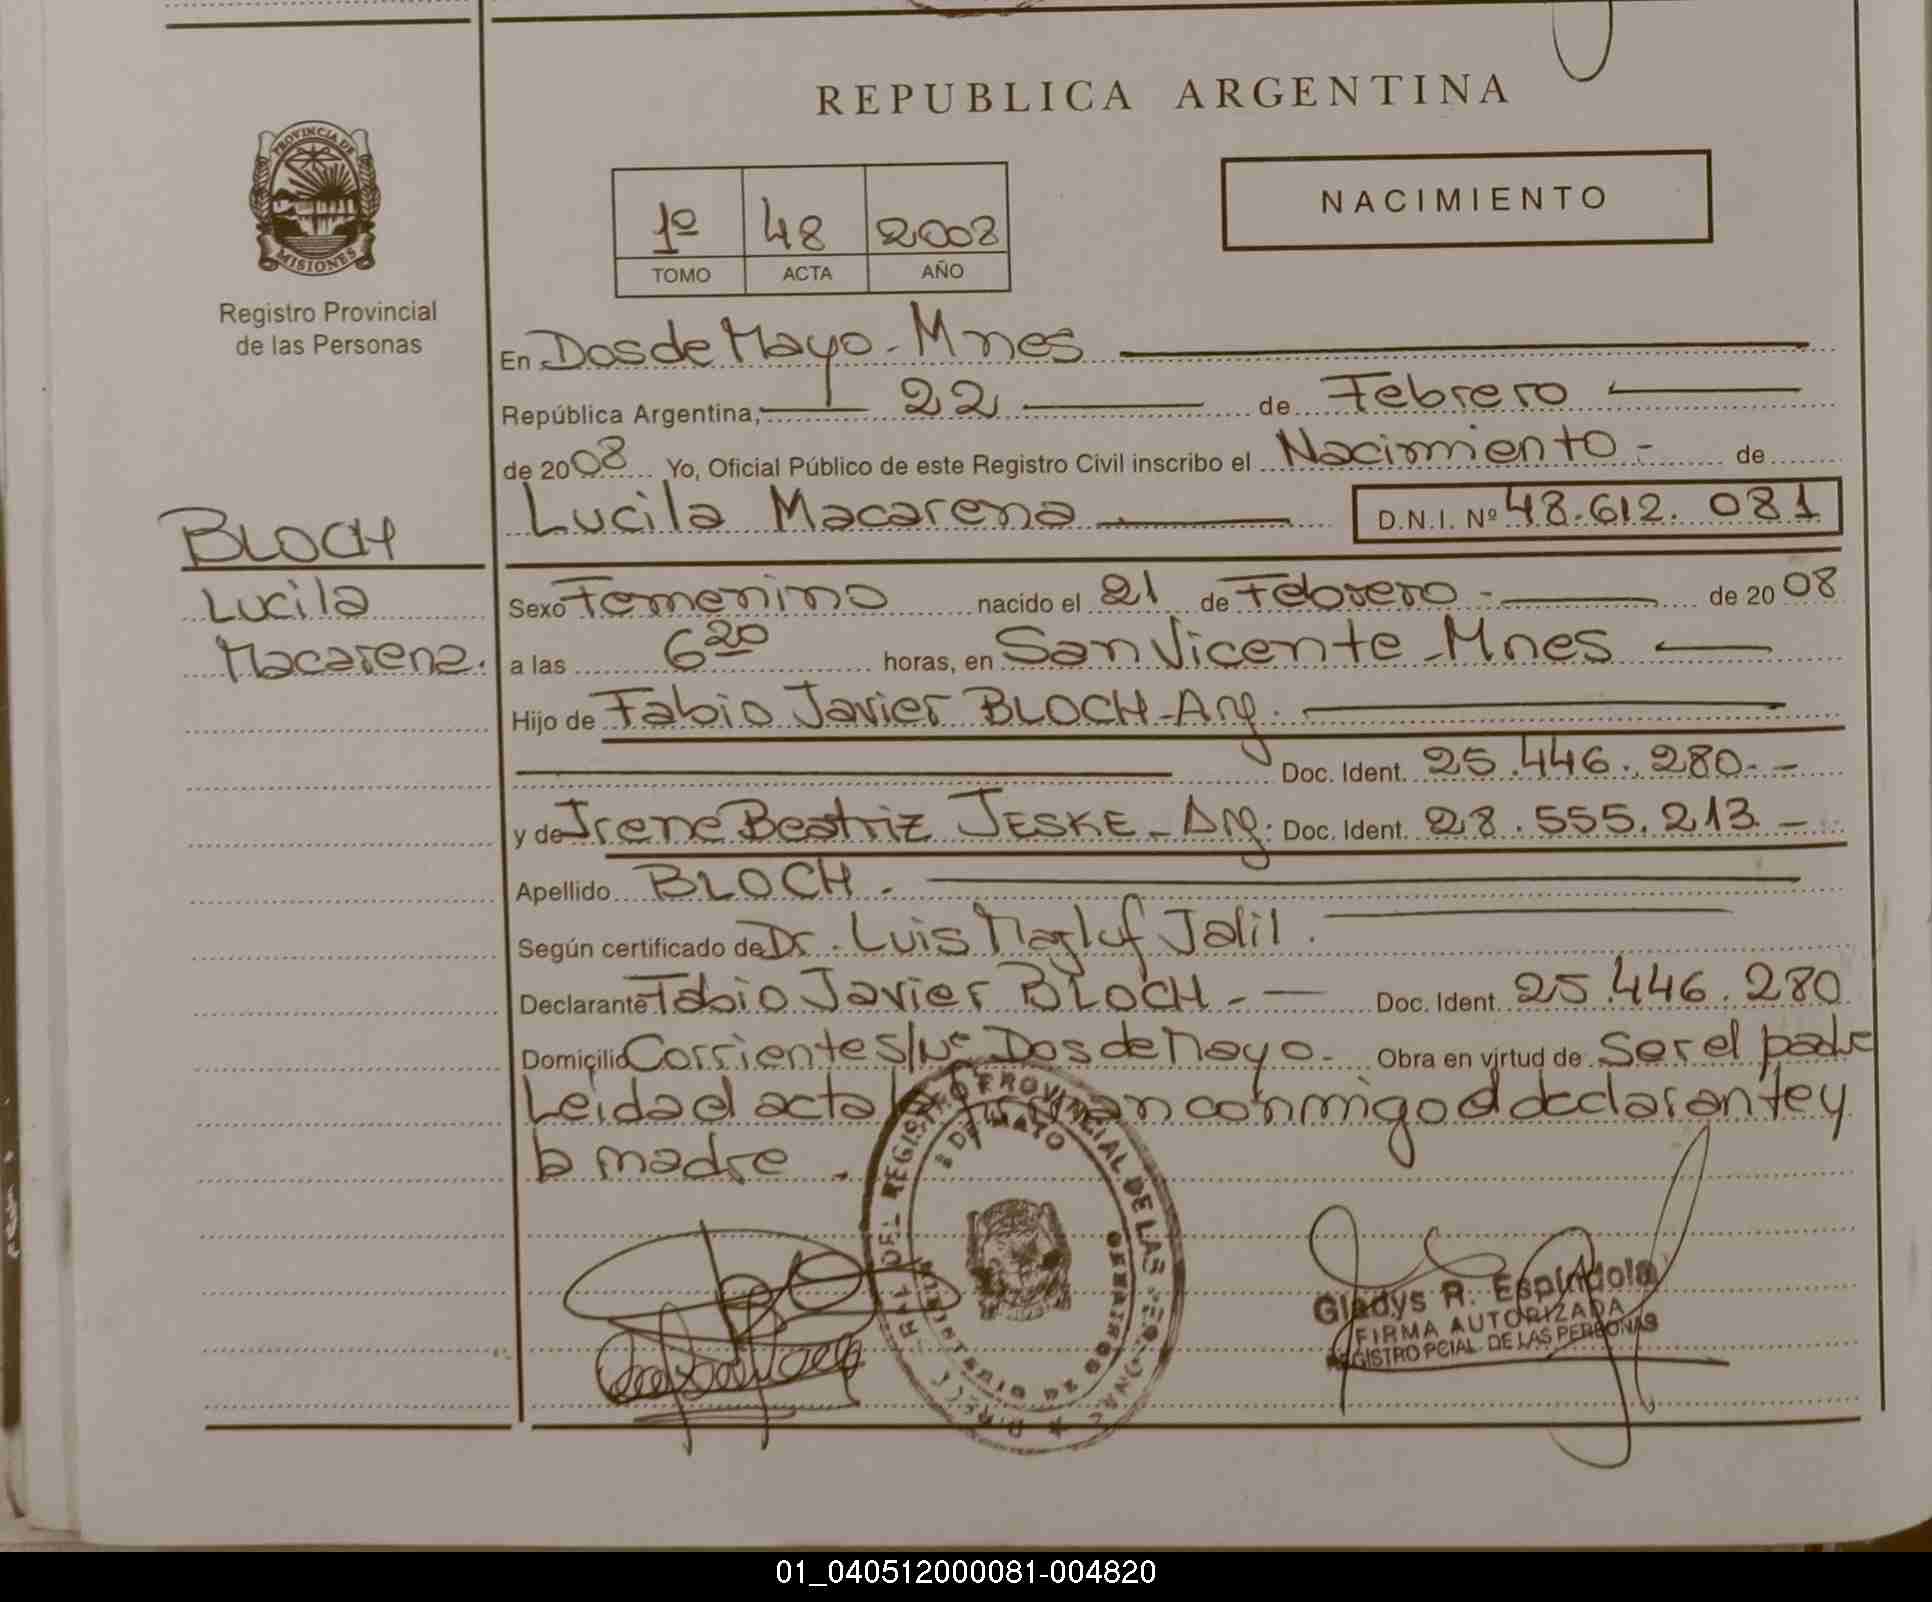 REPUBLICA ARGENTINA
PROVINCIA DE
MISIONES
Registro Provincial
de las Personas
NACIMIENTO
1º 48 2008
TOMO ACTA AÑO
En Dos de Mayo - Mnes
República Argentina, 22 de Febrero
de 2008 Yo, Oficial Público de este Registro Civil inscribo el Nacimiento - de
Lucila Macarena D.N.I. Nº 48.612.081
BLOCH
Lucila
Macarena.
Sexo Femenino nacido el 21 de Febrero - de 2008
a las 6 20 horas, en San Vicente - Mnes
Hijo de Fabio Javier BLOCH - Arg.
Doc. Ident. 25.446.280.-
y de Irene Beatriz JESKE - Arg. Doc. Ident. 28.555.213.-
Apellido BLOCH.
Según certificado de Dr. Luis Jalil.
Declarante Fabio Javier BLOCH - Doc. Ident. 25.446.280
Domicilio Corrientes s/Nº Dos de Mayo. Obra en virtud de Ser el padre
Leida el acta la firman conmigo el declarante y
la madre.
REGISTRO PROVINCIAL DE LAS
DE MAYO
Gladys R. Espindola
FIRMA AUTORIZADA
REGISTRO PCIAL. DE LAS PERSONAS
01_040512000081-004820